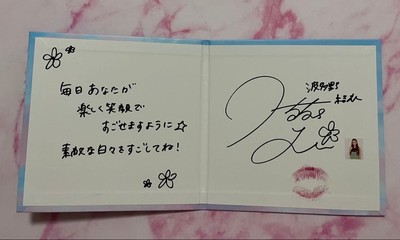 毎日あなたが
楽しく笑顔で
すごせますように☆
素敵な日々をすごしてね!
波多野